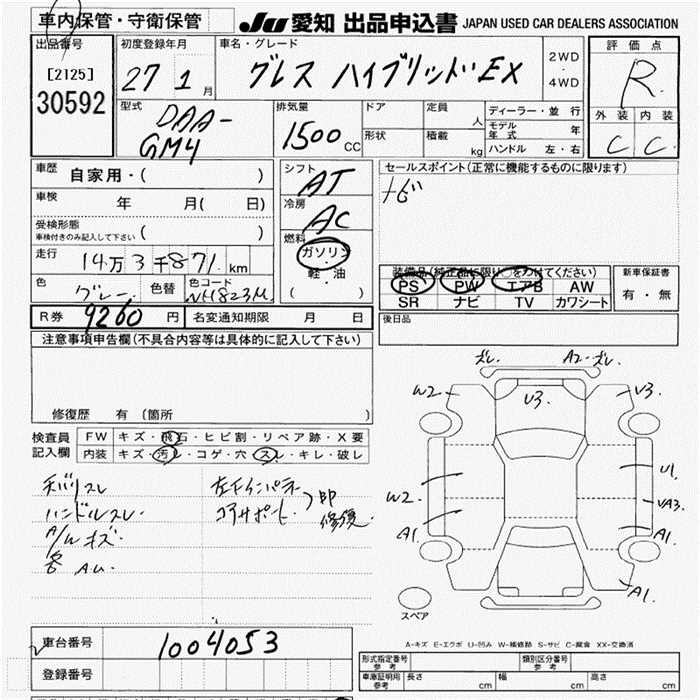 車内保管・守衛保管
JU 愛知 出品申込書 JAPAN USED CAR DEALERS ASSOCIATION
出品番号
[2125]
30592
初度登録年月
27 1 月
車名・グレード
グレス ハイブリッド EX
2WD
4WD
評価点
R
外装 内装
C C
型式
DAA-
GM4
排気量
1500 CC
ドア
形状
定員 人
積載 kg
ディーラー・並行
モデル年式 年
ハンドル 左・右
車歴
自家用・( )
車検
年 月( 日)
受検形態
車検付きのみ記入して下さい ( )
走行
14万3千871 km
色
グレー
色替
色コード
NH823M
シフト
AT
冷房
AC
燃料
ガソリン
軽・油
( )
セールスポイント(正常に機能するものに限ります)
ナビ
装備品(純正品に限り○をつけてください)
PS PW エアB AW
SR ナビ TV カワシート
新車保証書
有・無
R券 9260 円
名変通知期限 月 日
後日品
注意事項申告欄(不具合内容等は具体的に記入して下さい)
修復歴 有 (箇所 )
検査員
記入欄
FW キズ・飛石・ヒビ割・リペア跡・X要
内装 キズ・汚レ・コゲ・穴・スレ・キレ・破レ
ハンドルスレ
A/W キズ
コアサポート
修復
ズレ A2-ズレ
W2 V3 V3
W2 U1
VA3
A1 A1
A1
スペア
A-キズ E-エクボ U-凹み W-補修跡 S-サビ C-腐食 XX-交換済
車台番号
1004053
登録番号
形式指定番号
参考
類別区分番号
参考
車庫証明用
参考
長さ cm 幅 cm 高さ cm